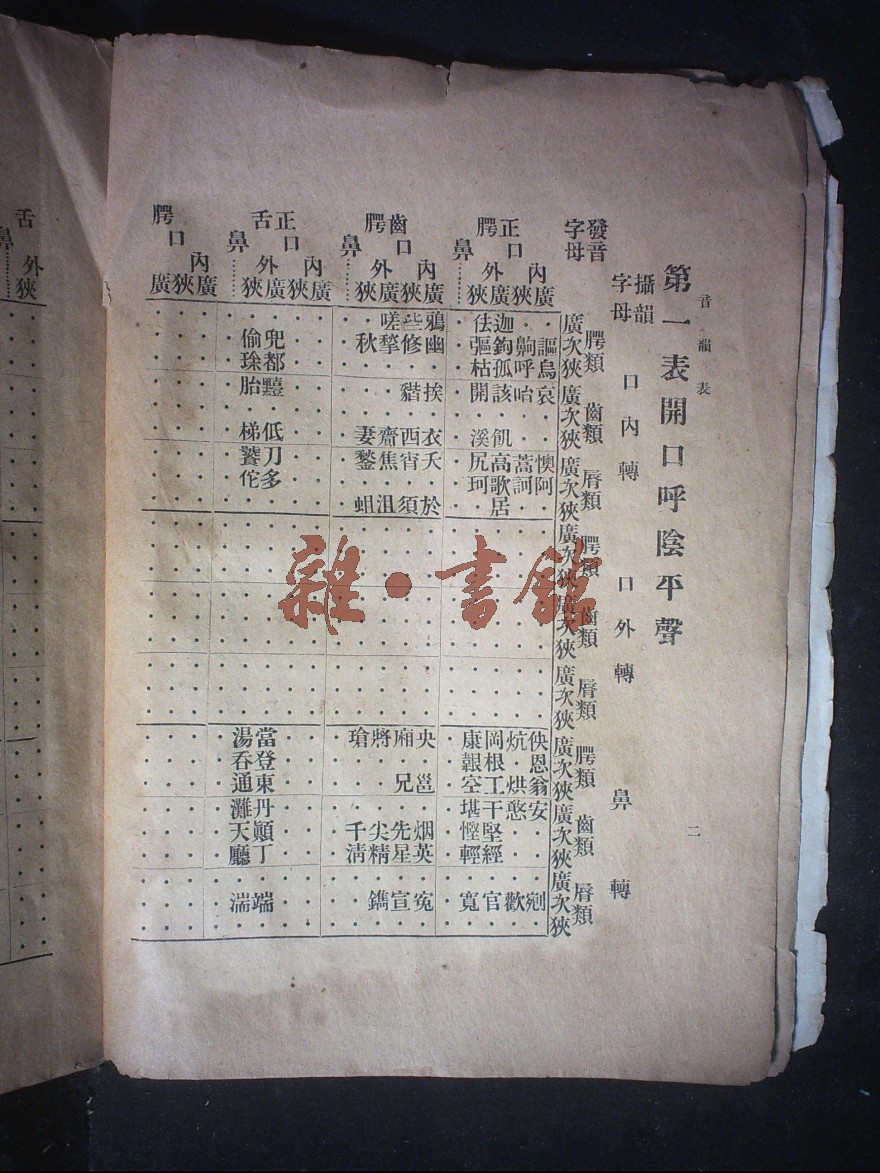 音韻表
二
第一表開口呼陰平聲
攝韻字母
口內轉
口外轉
鼻轉
發音字母
腭類
齒類
脣類
腭類
齒類
脣類
腭類
齒類
脣類
廣次狹廣次狹廣次狹廣次狹廣次狹廣次狹廣次狹廣次狹廣次狹
正腭
口
鼻
內廣
謳烏哀懊阿佒恩翁安剜
狹
齁呼咍蒿訶炕烘憨歡
外廣
迦鉤孤該飢高歌居岡根工干堅經官
狹
佉彄枯開溪尻珂康空堪慳輕寬
齒腭
口
鼻
內廣
鴉幽挨衣夭於央邕烟英冤
狹
些修西宵須廂兄先星宣
外廣
嗟揫齋焦沮將尖精鐫
狹
秋妻鍫蛆瑲千清
正舌
口
鼻
內廣
狹
外廣
兜都低刀多當登東丹顚丁端
狹
偷胎梯饕佗湯吞通灘天廳湍
腭
口
內廣
狹
廣
舌
鼻
外
狹
雜·書館